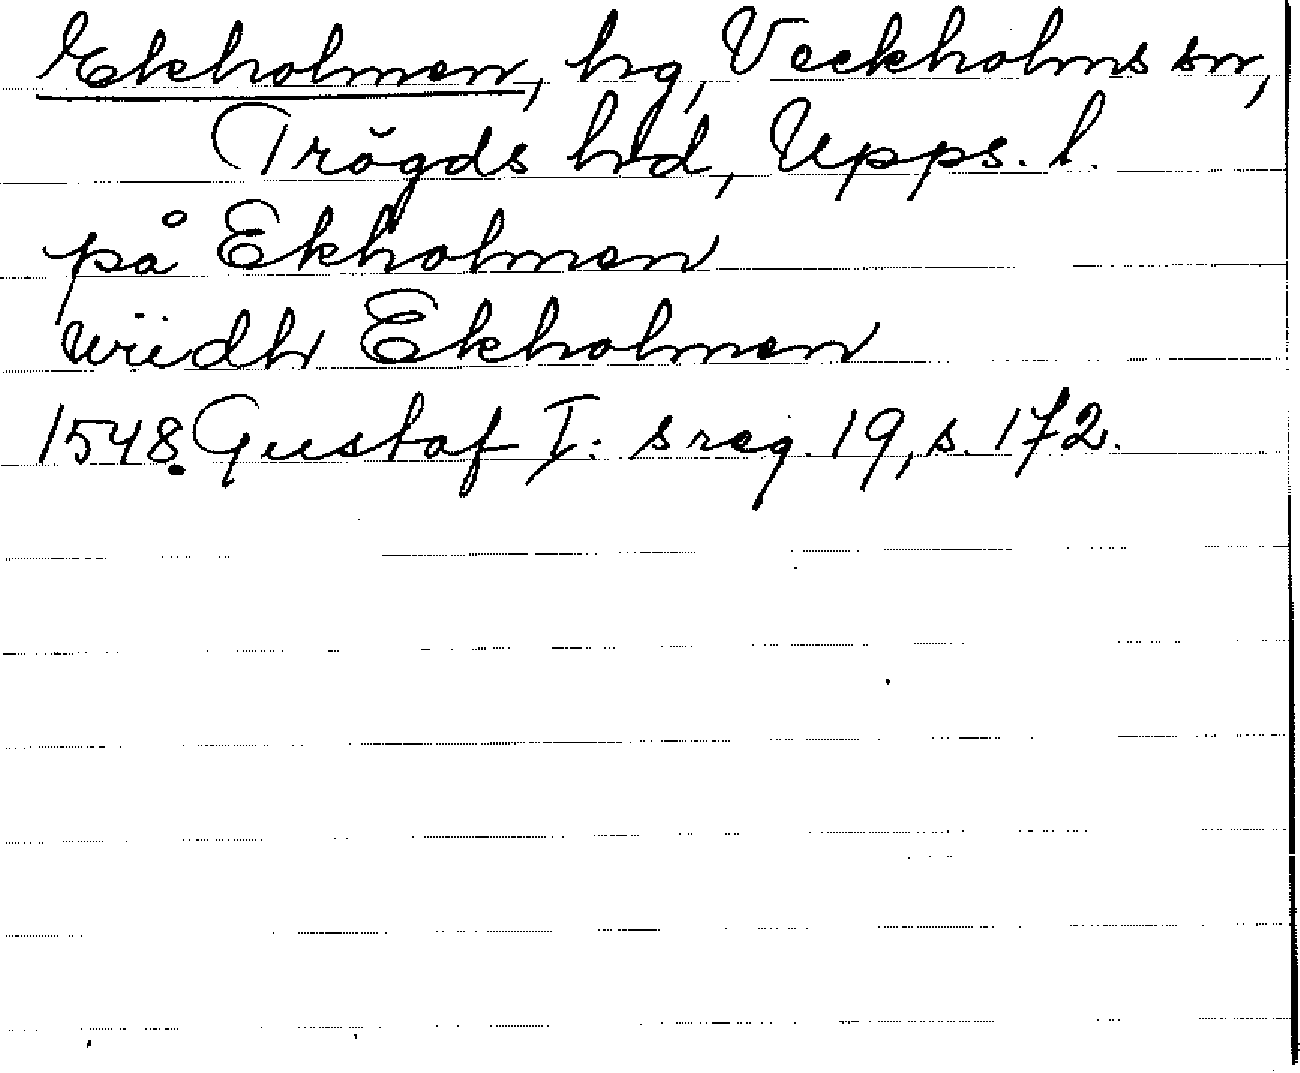 Ekholmen, hg, Veckholms sn,
Trögds hd, Upps. l.
på Ekholmen
widh Ekholmen
1548. Gustaf I: s reg. 19, s. 172.